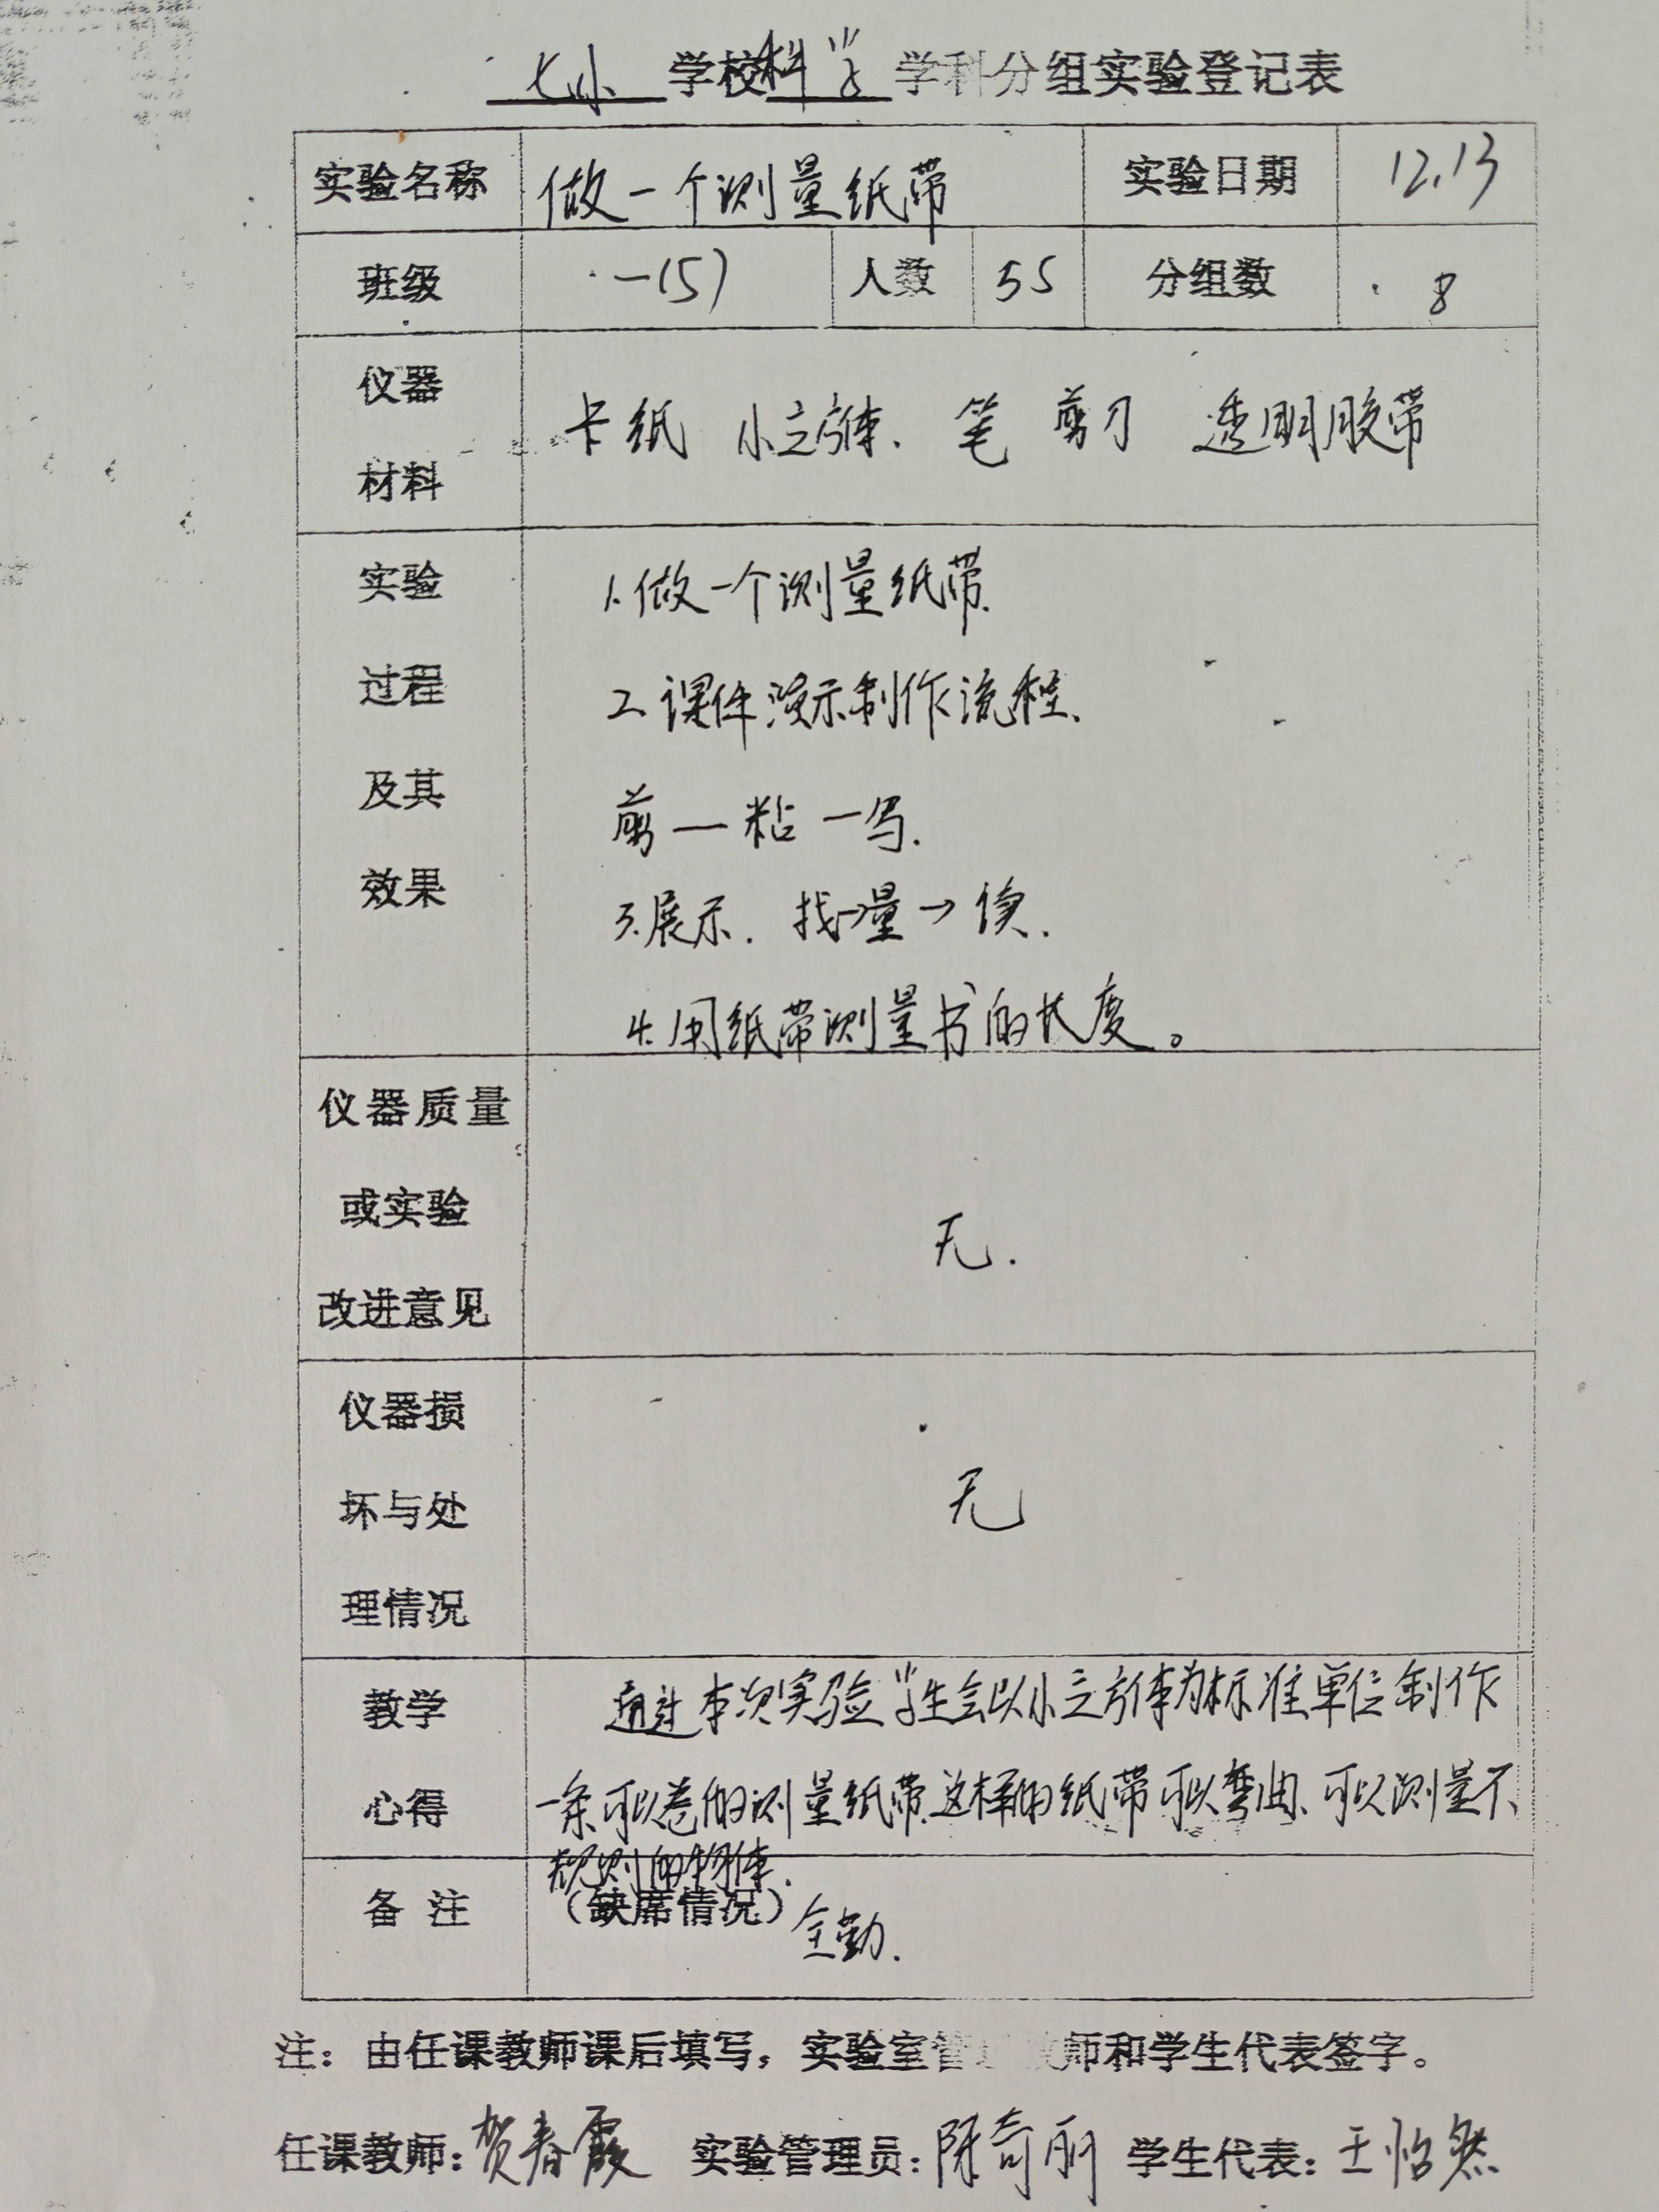 七小 学校 科学 学科分组实验登记表
实验名称 做一个测量纸带 实验日期 12.13
班级 一(5) 人数 55 分组数 8
仪器
材料
卡纸 小立方体、笔 剪刀 透明胶带
实验
过程
及其
效果
1.做一个测量纸带.
2.课件演示制作流程、
剪—粘—写.
3.展示. 找→量→读.
4.用纸带测量书的长度。
仪器质量
或实验
改进意见
无.
仪器损
坏与处
理情况
无
教学
心得
通过本次实验学生会以小立方体为标准单位制作
一条可以卷的测量纸带.这样的纸带可以弯曲、可以测量不
规则的物体.
备 注 (缺席情况) 全勤.
注：由任课教师课后填写，实验室管 教师和学生代表签字。
任课教师：贺春霞 实验管理员：陈奇丽 学生代表：王怡然